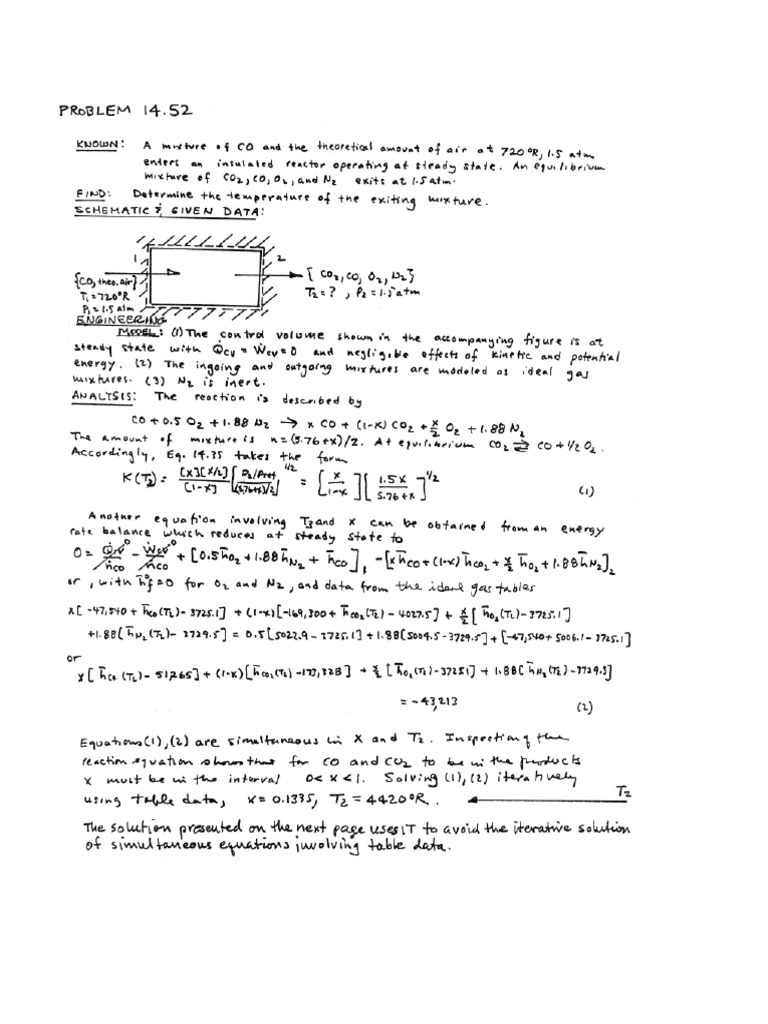 PROBLEM 14.52
KNOWN: A mixture of CO and the theoretical amount of air at 720°R, 1.5 atm
enters an insulated reactor operating at steady state. An equilibrium
mixture of CO2, CO, O2, and N2 exits at 1.5 atm.
FIND: Determine the temperature of the exiting mixture.
SCHEMATIC & GIVEN DATA:
1 2
{CO, theo. air} T1 = 720°R P1 = 1.5 atm
{CO2, CO, O2, N2}
T2 = ?, P2 = 1.5 atm
ENGINEERING
MODEL: (1) The control volume shown in the accompanying figure is at
steady state with Q̇cv = Ẇcv = 0 and negligible effects of kinetic and potential
energy. (2) The ingoing and outgoing mixtures are modeled as ideal gas
mixtures. (3) N2 is inert.
ANALYSIS: The reaction is described by
CO + 0.5 O2 + 1.88 N2 → x CO + (1-x) CO2 + x/2 O2 + 1.88 N2
The amount of mixture is n = (5.76+x)/2. At equilibrium CO2 ⇌ CO + 1/2 O2.
Accordingly, Eq. 14.35 takes the form
K(T2) = [x][x/2]^1/2/[1-x] [P2/Pref/(5.76+x)/2]^1/2 = [x/1-x][1.5x/5.76+x]^1/2 (1)
Another equation involving T2 and x can be obtained from an energy
rate balance which reduces at steady state to
0 = Q̇cv⁰/ṅCO - Ẇcv⁰/ṅCO + [0.5h̄O2 + 1.88h̄N2 + h̄CO]1 - [xh̄CO + (1-x)h̄CO2 + x/2 h̄O2 + 1.88h̄N2]2
or, with h̄°f = 0 for O2 and N2, and data from the ideal gas tables
x[-47,540 + h̄CO(T2) - 3725.1] + (1-x)[-169,300 + h̄CO2(T2) - 4027.5] + x/2 [h̄O2(T2) - 3725.1]
+1.88[h̄N2(T2) - 3729.5] = 0.5[5022.9 - 3725.1] + 1.88[5009.5 - 3729.5] + [-47,540 + 5006.1 - 3725.1]
or
x[h̄CO(T2) - 51,265] + (1-x)[h̄CO2(T2) - 173,328] + x/2 [h̄O2(T2) - 3725.1] + 1.88[h̄N2(T2) - 3729.5]
= -43,213 (2)
Equations (1), (2) are simultaneous in x and T2. Inspection of the
reaction equation shows that for CO and CO2 to be in the products
x must be in the interval 0 < x < 1. Solving (1), (2) iteratively
using table data, x = 0.1335, T2 = 4420°R. T2
The solution presented on the next page uses IT to avoid the iterative solution
of simultaneous equations involving table data.